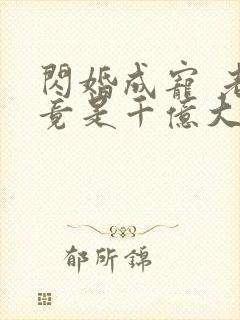 閃婚成寵 老
竟是千億大
郁所錦